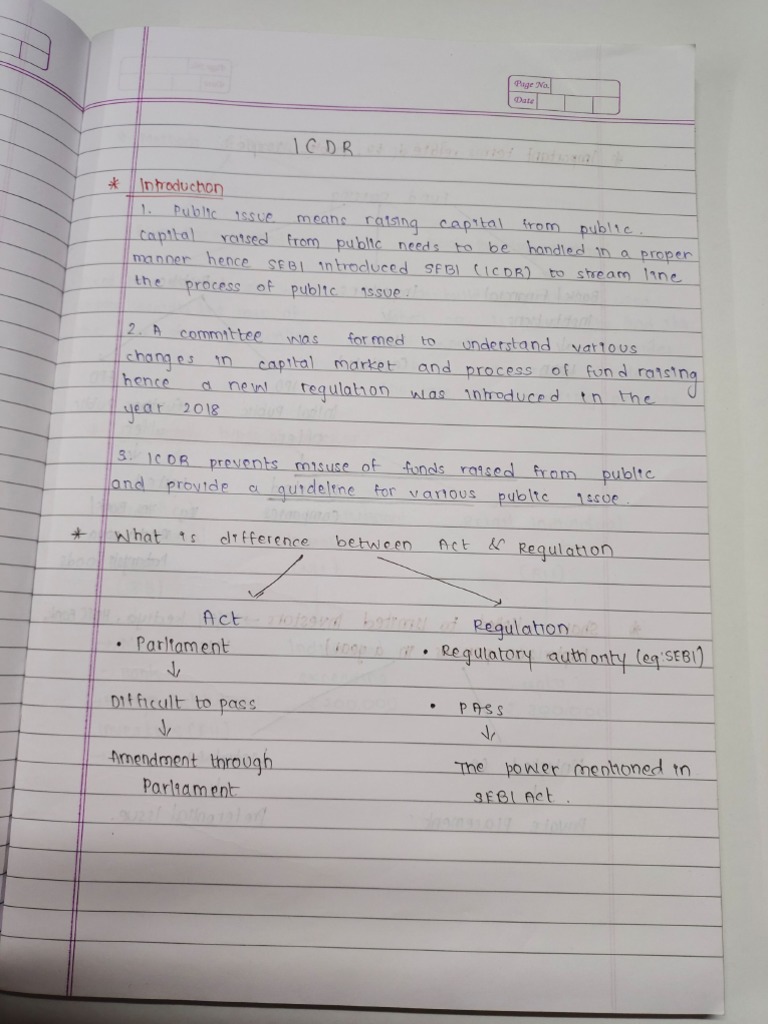 Page No.
Date
ICDR
* Introduction
1. Public issue means raising capital from public.
capital raised from public needs to be handled in a proper
manner hence SEBI introduced SEBI (ICDR) to stream line
the process of public issue.
2. A committee was formed to understand various
changes in capital market and process of fund raising
hence a new regulation was introduced in the
year 2018
3. ICDR prevents misuse of funds raised from public
and provide a guideline for various public issue.
* What is difference between Act & Regulation
Act
Regulation
• Parliament
• Regulatory authority (eg: SEBI)
↓
Difficult to pass
• PASS
↓
↓
Amendment through
The power mentioned in
Parliament
SEBI Act.